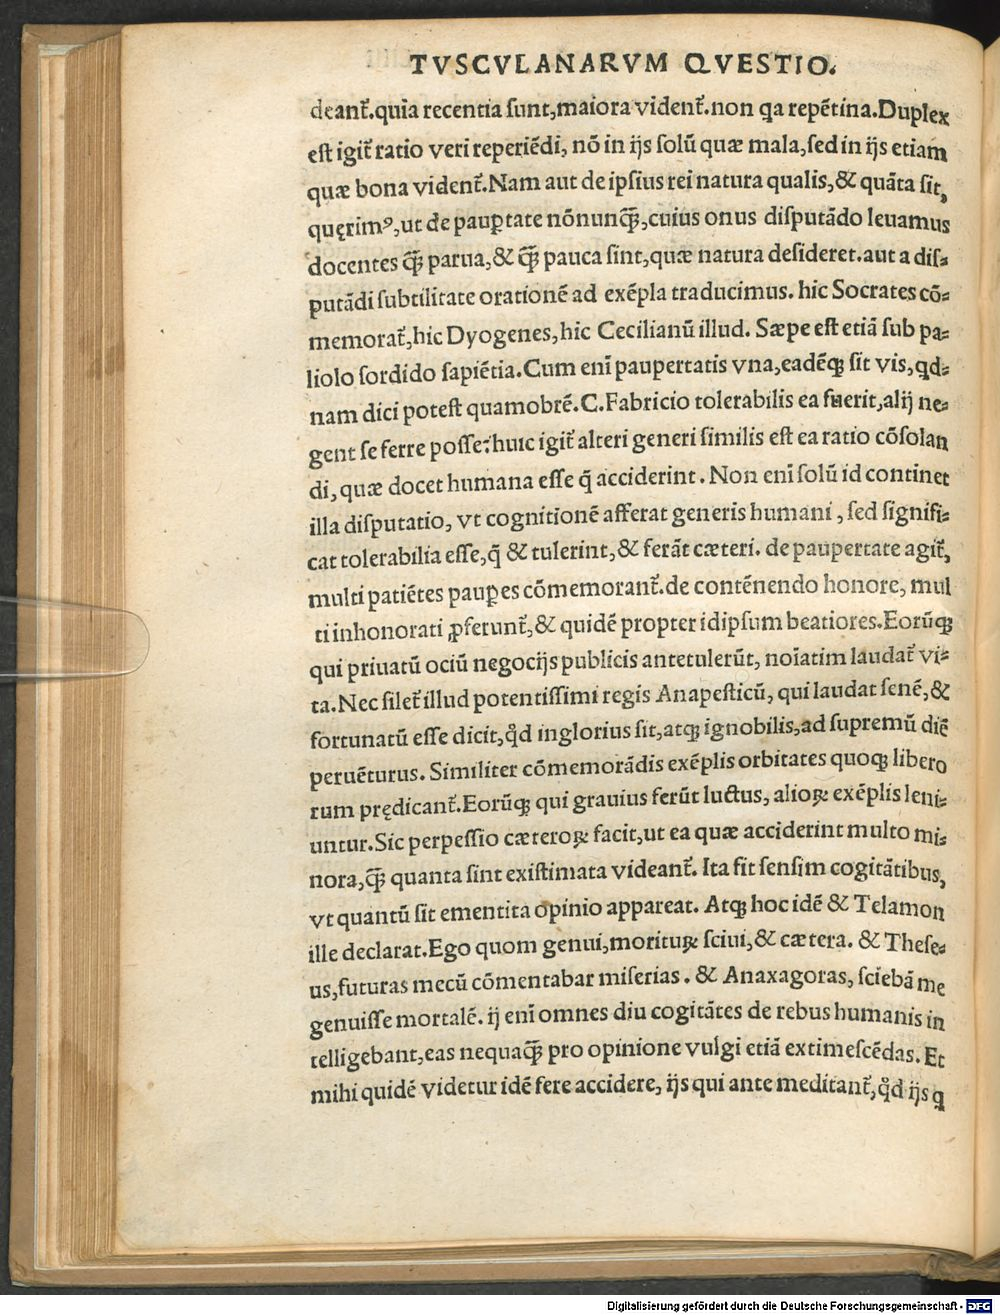 TVSCVLANARVM QVESTIO.
deant᷑.quia recentia ſunt,maiora vident᷑.non qa repẽtina.Duplex
eſt igit᷑ ratio veri reperiẽdi, nõ in ijs ſolũ quæ mala,ſed in ijs etiam
quæ bona vident᷑.Nam aut de ipſius rei natura qualis,& quãta ſit,
quęrimꝰ,ut de paup̱tate nõnunq̃ꝫ,cuius onus diſputãdo leuamus
docentes q̃ꝫ parua,& q̃ꝫ pauca ſint,quæ natura deſideret.aut a diſ⸗
putãdi ſubtilitate orationẽ ad exẽpla traducimus. hic Socrates cõ⸗
memorat᷑,hic Dyogenes,hic Cecilianũ illud. Sæpe eſt etiã ſub pa⸗
liolo ſordido ſapiẽtia.Cum enĩ paupertatis vna,eadẽqꝫ ſit vis,qd⸗
nam dici poteſt quamobrẽ.C.Fabricio tolerabilis ea fuerit,alij ne⸗
gent ſe ferre poſſe:huic igit᷑ alteri generi ſimilis eſt ea ratio cõſolan
di,quæ docet humana eſſe q̃ acciderint. Non enĩ ſolũ id continet
illa diſputatio, vt cognitionẽ afferat generis humani, ſed ſignifi⸗
cat tolerabilia eſſe,q̃ & tulerint,& ferãt cæteri. de paupertate agit᷑,
multi patiẽtes paup̱es cõmemorant᷑.de contẽnendo honore, mul
ti inhonorati ꝓferunt᷑,& quidẽ propter idipſum beatiores.Eorũqꝫ
qui priuatũ ociũ negocijs publicis antetulerũt, noĩatim laudat᷑ vi⸗
ta.Nec ſilet᷑ illud potentiſſimi regis Anapeſticũ, qui laudat ſenẽ,&
fortunatũ eſſe dicit,qd̉ inglorius ſit,atqꝫ ignobilis,ad ſupremũ diẽ
peruẽturus. Similiter cõmemorãdis exẽplis orbitates quoqꝫ libero
rum prędicant᷑.Eorũqꝫ qui grauius ferũt luctus, alioꝝ exẽplis leni⸗
untur.Sic perpeſſio cæteroꝝ facit,ut ea quæ acciderint multo mi⸗
nora,q̃ꝫ quanta ſint exiſtimata videant᷑. Ita fit ſenſim cogitãtibus,
vt quantũ ſit ementita opinio appareat. Atqꝫ hoc idẽ & Telamon
ille declarat.Ego quom genui,morituꝝ ſciui,& cætera. & Theſe⸗
us,futuras mecũ cõmentabar miſerias. & Anaxagoras, ſciebã me
genuiſſe mortalẽ. ij enĩ omnes diu cogitãtes de rebus humanis in
telligebant,eas nequaq̃ꝫ pro opinione vulgi etiã extimeſcẽdas. Et
mihi quidẽ videtur idẽ fere accidere, ijs qui ante meditant᷑,qd̉ ijs q
Digitalisierung gefördert durch die Deutsche Forschungsgemeinschaft - DFG